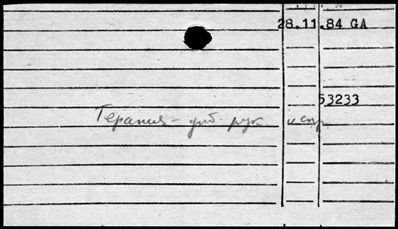 28.11.84 GA
53233
Терапия - диб. рук и спр